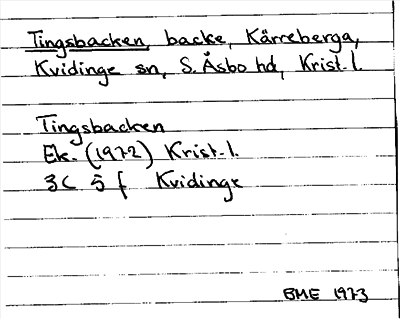 Tingsbacken, backe, Kärreberga,
Kvidinge sn, S. Åsbo hd, Krist. l.
Tingsbacken
Ek. (1972) Krist. l.
3C 5 f Kvidinge
BME 1973